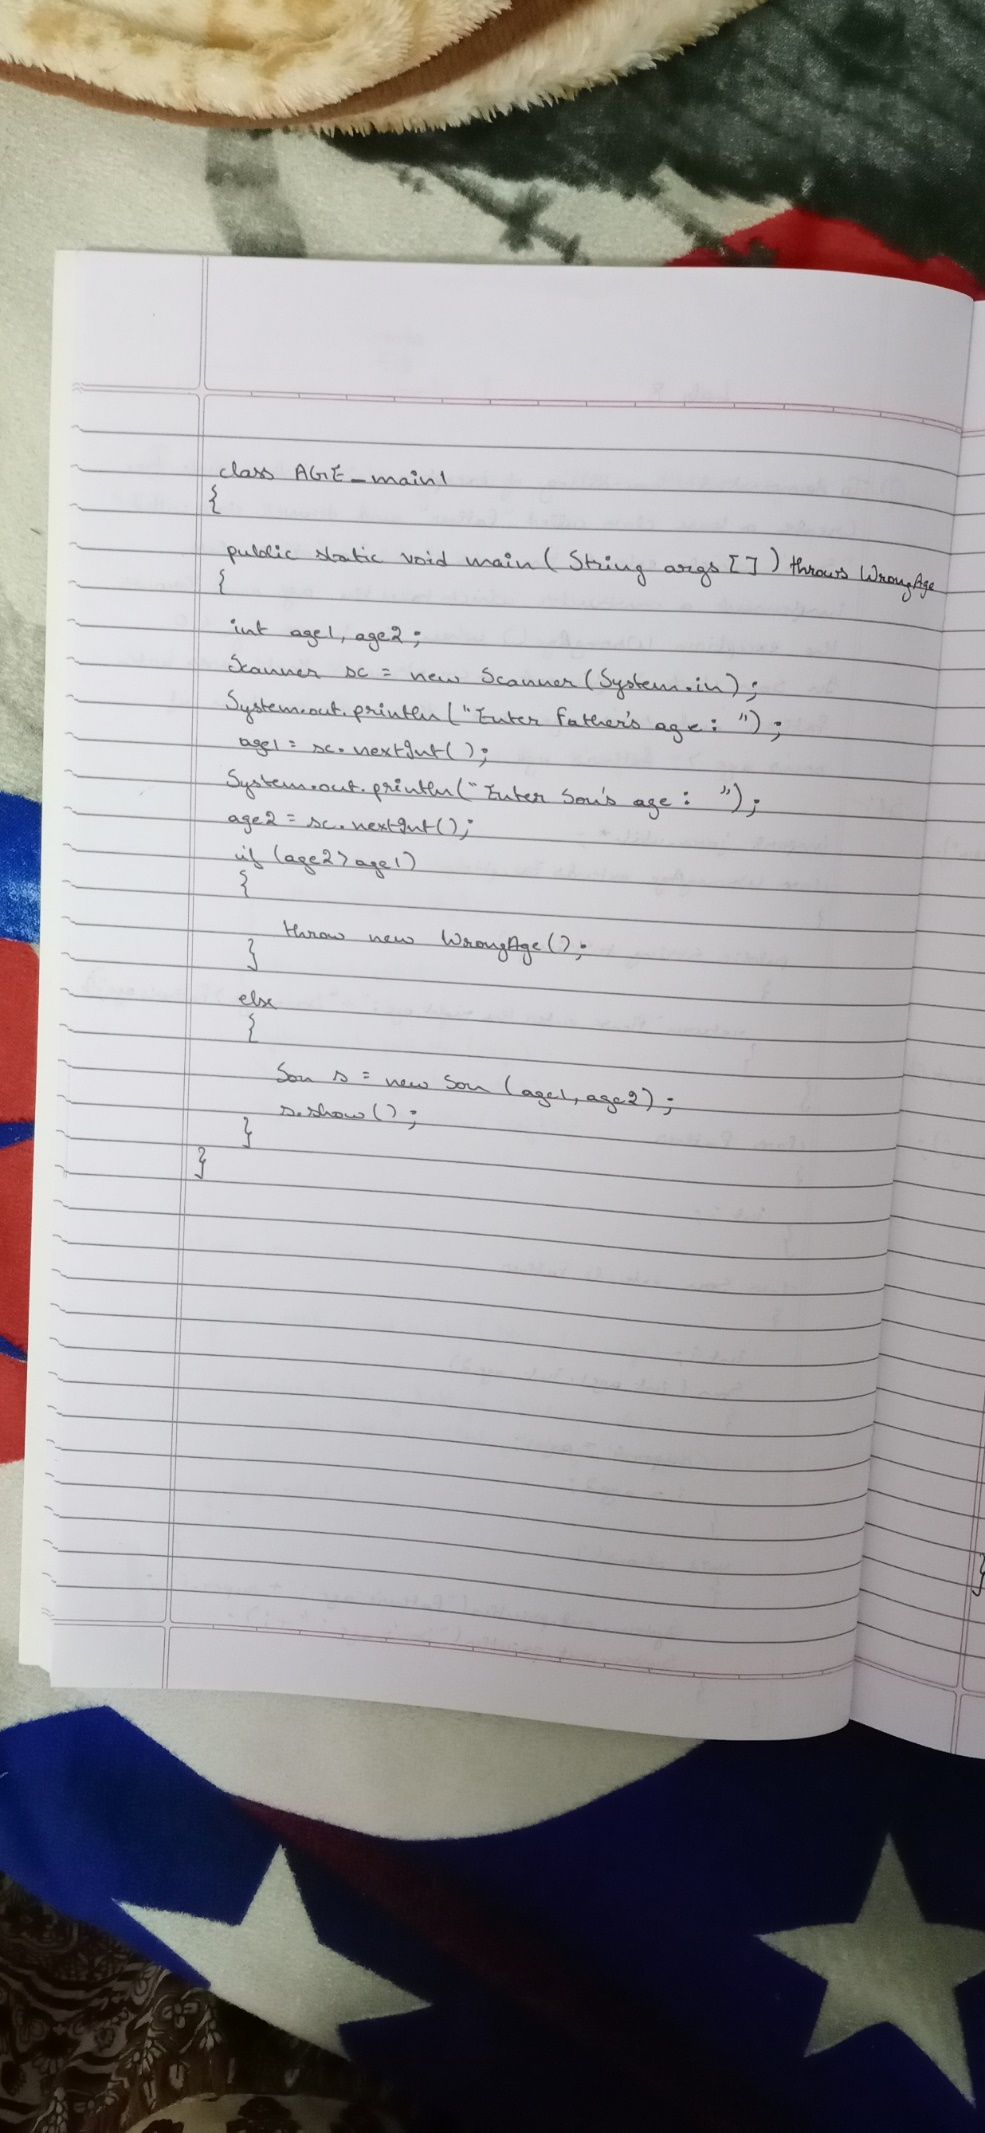 class AGE_main1
{
public static void main( String args [] ) throws WrongAge
{
int age1, age2 ;
Scanner sc = new Scanner (System.in) ;
System.out.println ("Enter Father's age : ") ;
age1 = sc.nextInt ( ) ;
System.out.println ("Enter Son's age : ") ;
age2 = sc.nextInt ( ) ;
if (age2 > age1)
{
throw new WrongAge ( ) ;
}
else
{
Son s = new Son (age1, age2) ;
s.show ( ) ;
}
}
}